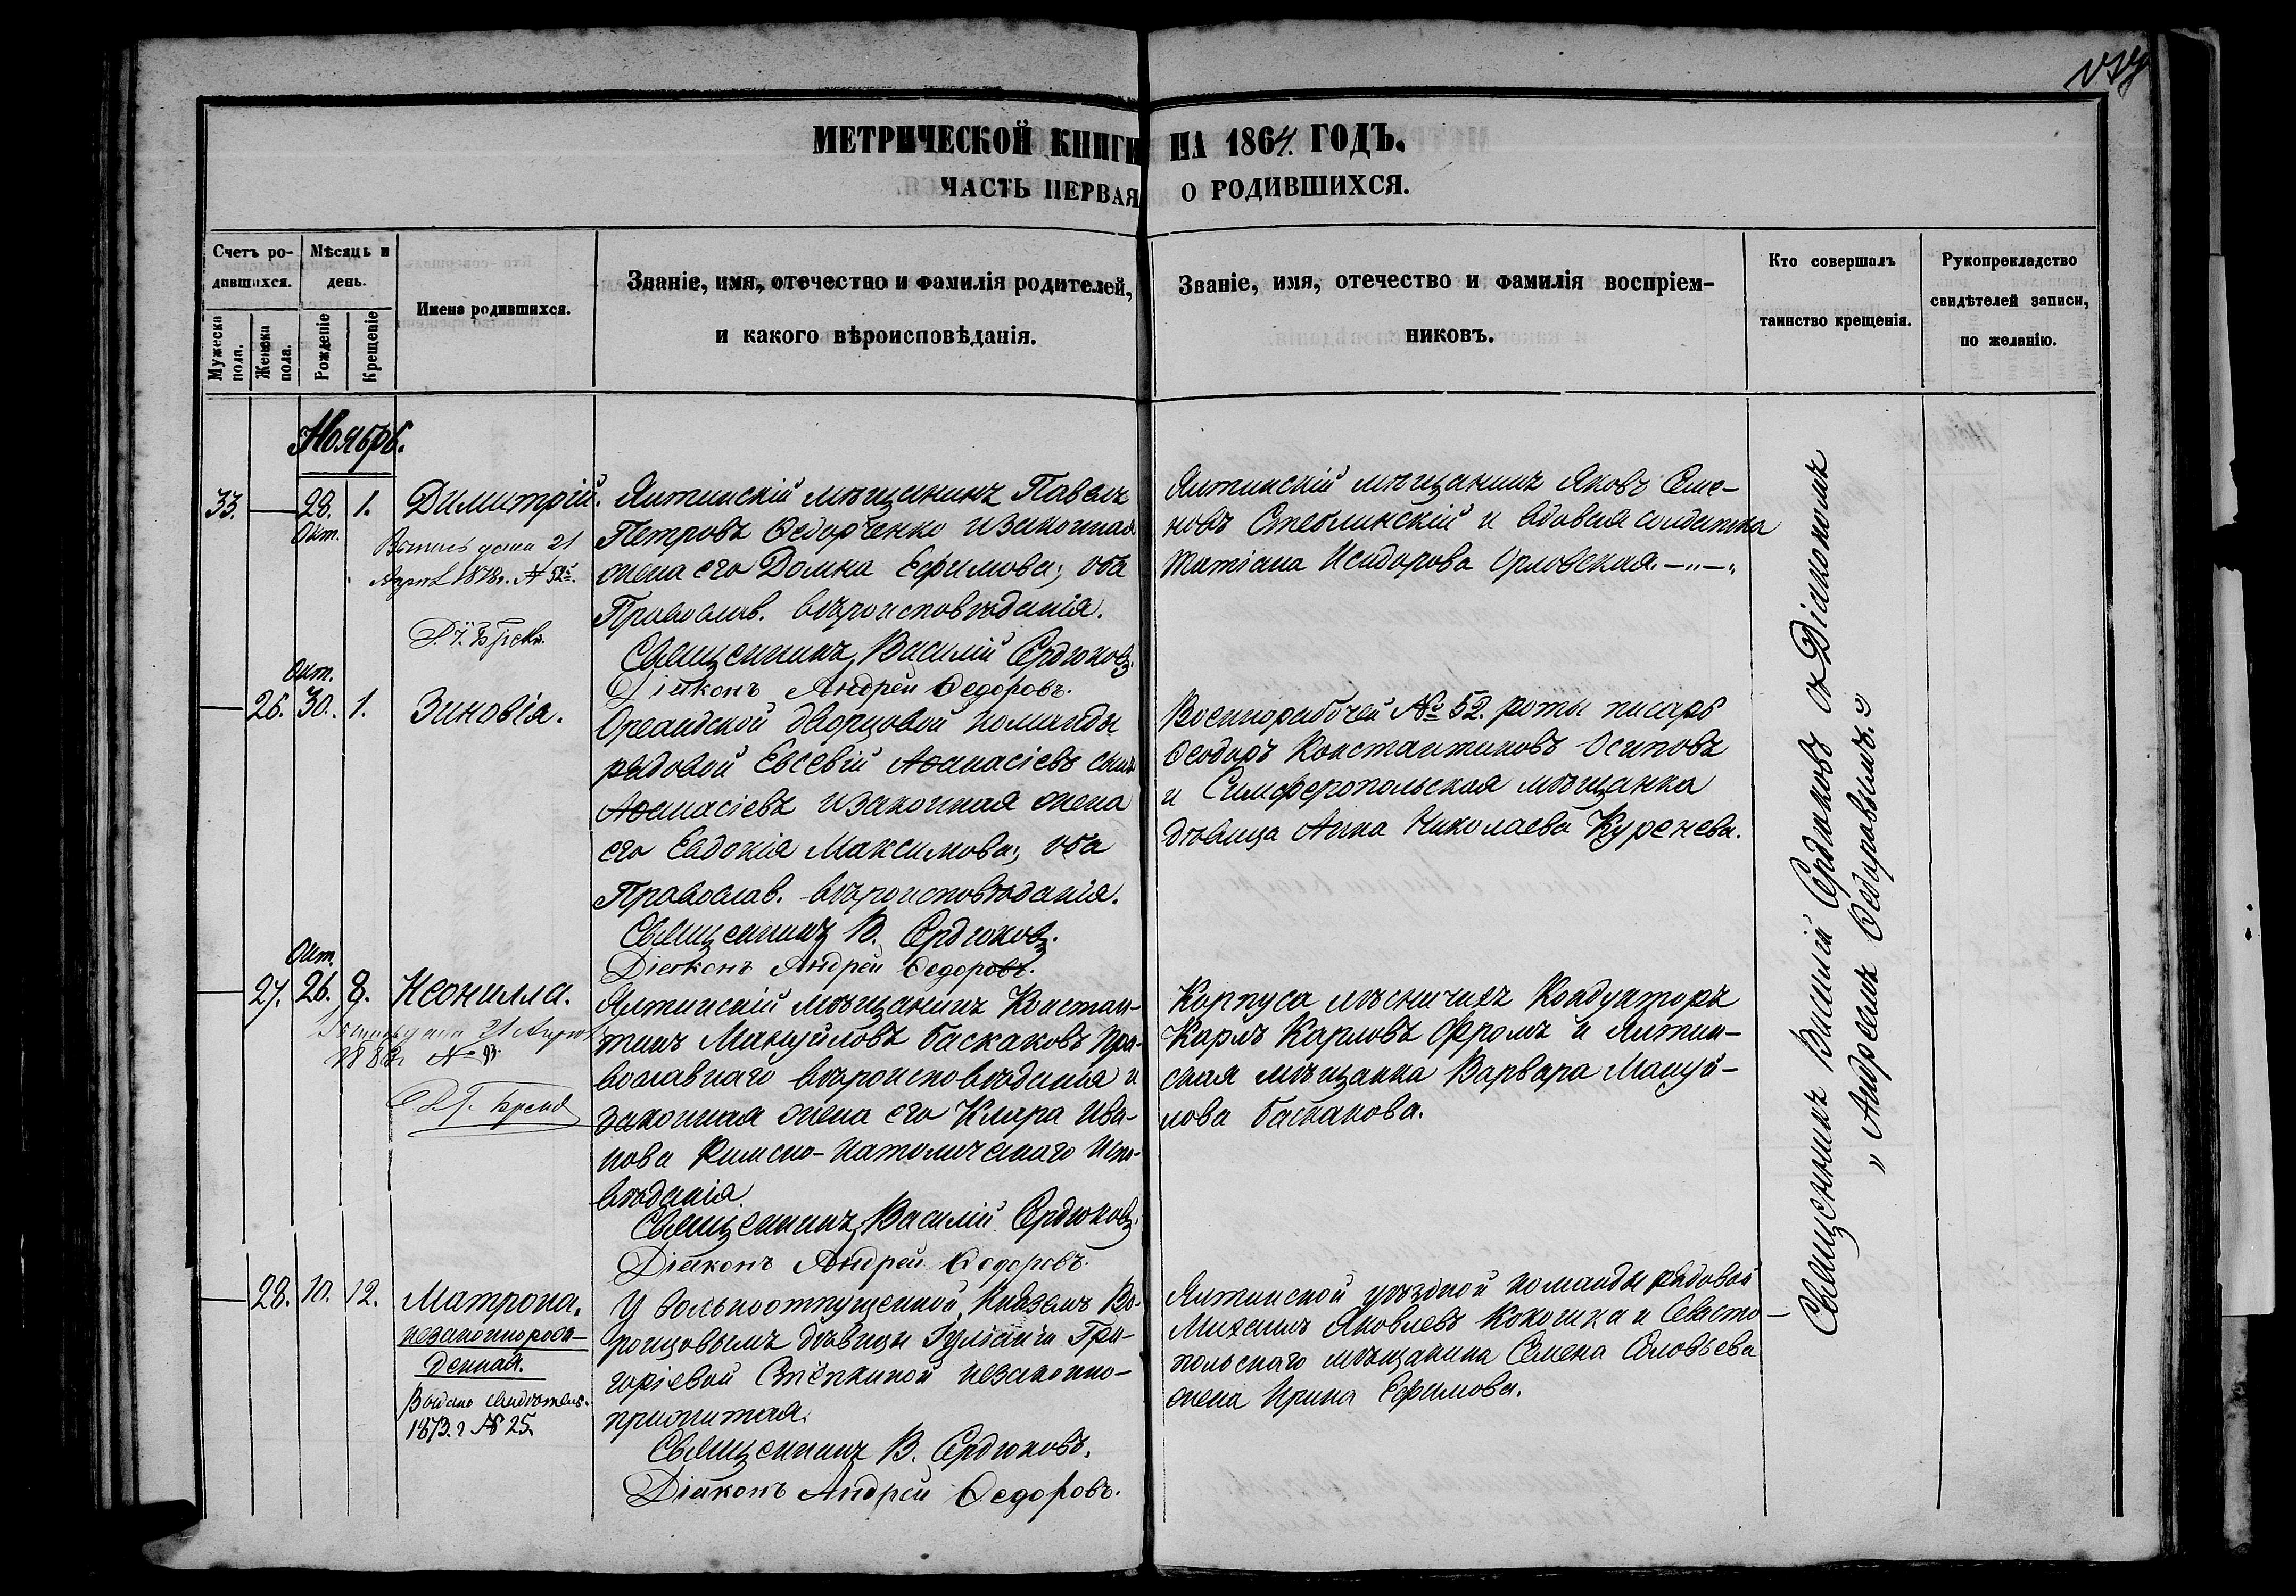 МЕТРИЧЕСКОЙ КНИГИ НА 1864. ГОДЪ.
ЧАСТЬ ПЕРВАЯ О РОДИВШИХСЯ.
Счетъ ро-
дившихся.
Мужеска
пола.
Женска
пола.
Мѣсяцъ и
день.
Рожденіе
Крещеніе
Имена родившихся.
Званіе, имя, отечество и фамилія родителей,
и какого вѣроисповѣданія.
Званіе, имя, отечество и фамилія воспріем-
никовъ.
Кто совершалъ
таинство крещенія.
Рукоприкладство
свидѣтелей записи,
по желанію.
Ноябрь.
33. 28. 1. Димитрій.
Окт.
21
1878г. №
Ялтинскій мѣщанинъ Павелъ
Петровъ Ѳедорченко и законная
жена его Домна Ефимова; оба
Православ. вѣроисповѣданія.
Священникъ Василій Сердюковъ.
Діаконъ Андрей Ѳедоровъ.
Ялтинскій мѣщанинъ Яковъ Семе-
новъ Стеблинскій и вдовая солдатка
Татіана Исидорова Орловская.
Окт.
26. 30. 1. Зиновія.
Ореандской дворцовой команды
рядовой Евсевій Аѳанасіевъ сынъ
Аѳанасіевъ и законная жена
его Евдокія Максимова; оба
Православ. вѣроисповѣданія.
Священникъ В. Сердюковъ.
Діаконъ Андрей Ѳедоровъ.
Военнорабочей № 52. роты писарь
Ѳеодоръ Константиновъ Осиповъ
и Симферопольская мѣщанка
дѣвица Анна Николаева Куренева.
Окт.
27. 26. 8. Неонилла.
21
№
Ялтинскій мѣщанинъ Констан-
тинъ Мануйловъ Баскаковъ Пра-
вославнаго вѣроисповѣданія и
законная жена его Клара Ива-
нова Римско-католическаго Испо-
вѣданія
Священникъ Василій Сердюковъ.
Діаконъ Андрей Ѳедоровъ.
Корпуса лѣсничихъ Кондукторъ
Карлъ Карловъ Фромъ и Ялтин-
ская мѣщанка Варвара Мануй-
лова Баскакова.
28. 10. 12. Матрона.
незаконнорож-
денная.
Выдано свидѣтел.
1873.г № 25.
У вольноотпущенной Княземъ Во-
ронцовымъ дѣвицы Гуліаніи Гри-
горіевой незаконно-
прижитая.
Священникъ В. Сердюковъ.
Діаконъ Андрей Ѳедоровъ.
Ялтинской уѣздной команды рядовой
Михаилъ Яковлевъ и Севасто-
польскаго мѣщанина Семена Соловьева
жена Ирина Ефимова.
Священникъ Василій Сердюковъ съ Діакономъ
„ Андреемъ Ѳедоровымъ. „